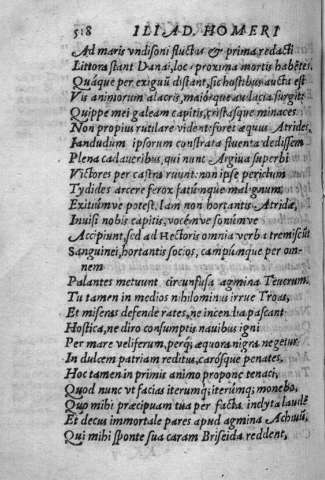 518 ILIAD. HOMERI
Ad maris vndisoni fluctus & prima redacti
Littora stant Danai, loc. proxima mortis habētes,
Quáque per exiguū distant, sic hostibus aucta est
Vis animorum alacris, maiórque audacia surgit:
Quippe mei galeam capitis, cristasque minaces
Non propius rutilare vident: foret æquus Atrides,
Iandudum ipsorum constrata fluenta dedissem
Plena cadaueribus, qui nunc Argiua superbi
Victores per castra ruunt: non ipse periclum
Tydides arcere ferox fatúmque malignum,
Exitiúmve potest. Iam non hortantis Atridæ,
Inuisi nobis capitis, vocémve sonúmve
Accipiunt, sed ad Hectoris omnia verba tremiscūt
Sanguinei, hortantis socios, campúmque per om-
nem
Palantes metuunt circunfusa agmina Teucrum.
Tu tamen in medios nihilominus irrue Troas,
Et miseras defende rates, ne incendia pascant
Hostica, ne diro consumptis nauibus igni
Per mare veliferum, perq; æquora nigra negetur
In dulcem patriam reditus, carósque penates.
Hoc tamen in primis animo propone tenaci,
Quod nunc vt facias iterumq; iterúmq; monebo,
Quo mihi præcipuam tua per facta inclyta laudē
Et decus immortale pares apud agmina Achiuū,
Qui mihi sponte sua caram Briseida reddent,